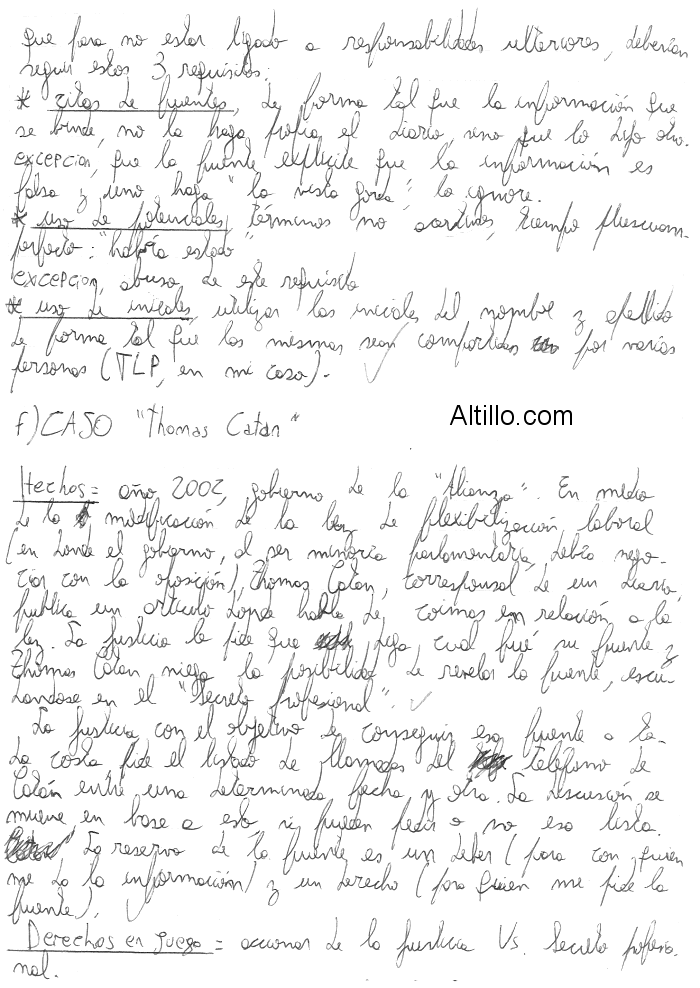 que para no estar ligado a responsabilidades ulteriores, deberían
seguir estos 3 requisitos:
* citas de fuentes, de forma tal que la información que
se brinde, no la haga propia el diario, sino que lo dijo otro.
excepcion, que la fuente explicite que la información es
falsa y uno haga "la vista gorda", la ignore.
* uso de potenciales, términos no asertivos, tiempo pluscuam-
perfecto: "habría estado".
excepcion, abuso de este requisito
* uso de iniciales, utilizar las iniciales del nombre y apellido
de forma tal que las mismas sean compartidas por varias
personas (TLP, en mi caso).-
f) CASO "Thomas Catan"
Altillo.com
Hechos = año 2002, gobierno de la "Alianza". En medio
de la modificación de la ley de flexibilización laboral
(en donde el gobierno, al ser minoría parlamentaria, debía nego-
ciar con la oposición), Thomas Catan, corresponsal de un diario,
publica un artículo donde habla de coimas en relación a la
ley. La justicia le pide que diga cual fué su fuente y
Thomas Catan niega la posibilidad de revelar la fuente, escu-
dandose en el "secreto profesional".
La justicia con el objetivo de conseguir esa fuente a to-
da costa pide el listado de llamadas del teléfono de
Catán entre una determinada fecha y otra. La discusión se
mueve en base a esto si pueden pedir o no esa lista.
La reserva de la fuente es un deber (para con quien
me da la información) y un derecho (para quien me pide la
fuente).
Derechos en juego = accionar de la justicia Vs. Secreto profesio-
nal.